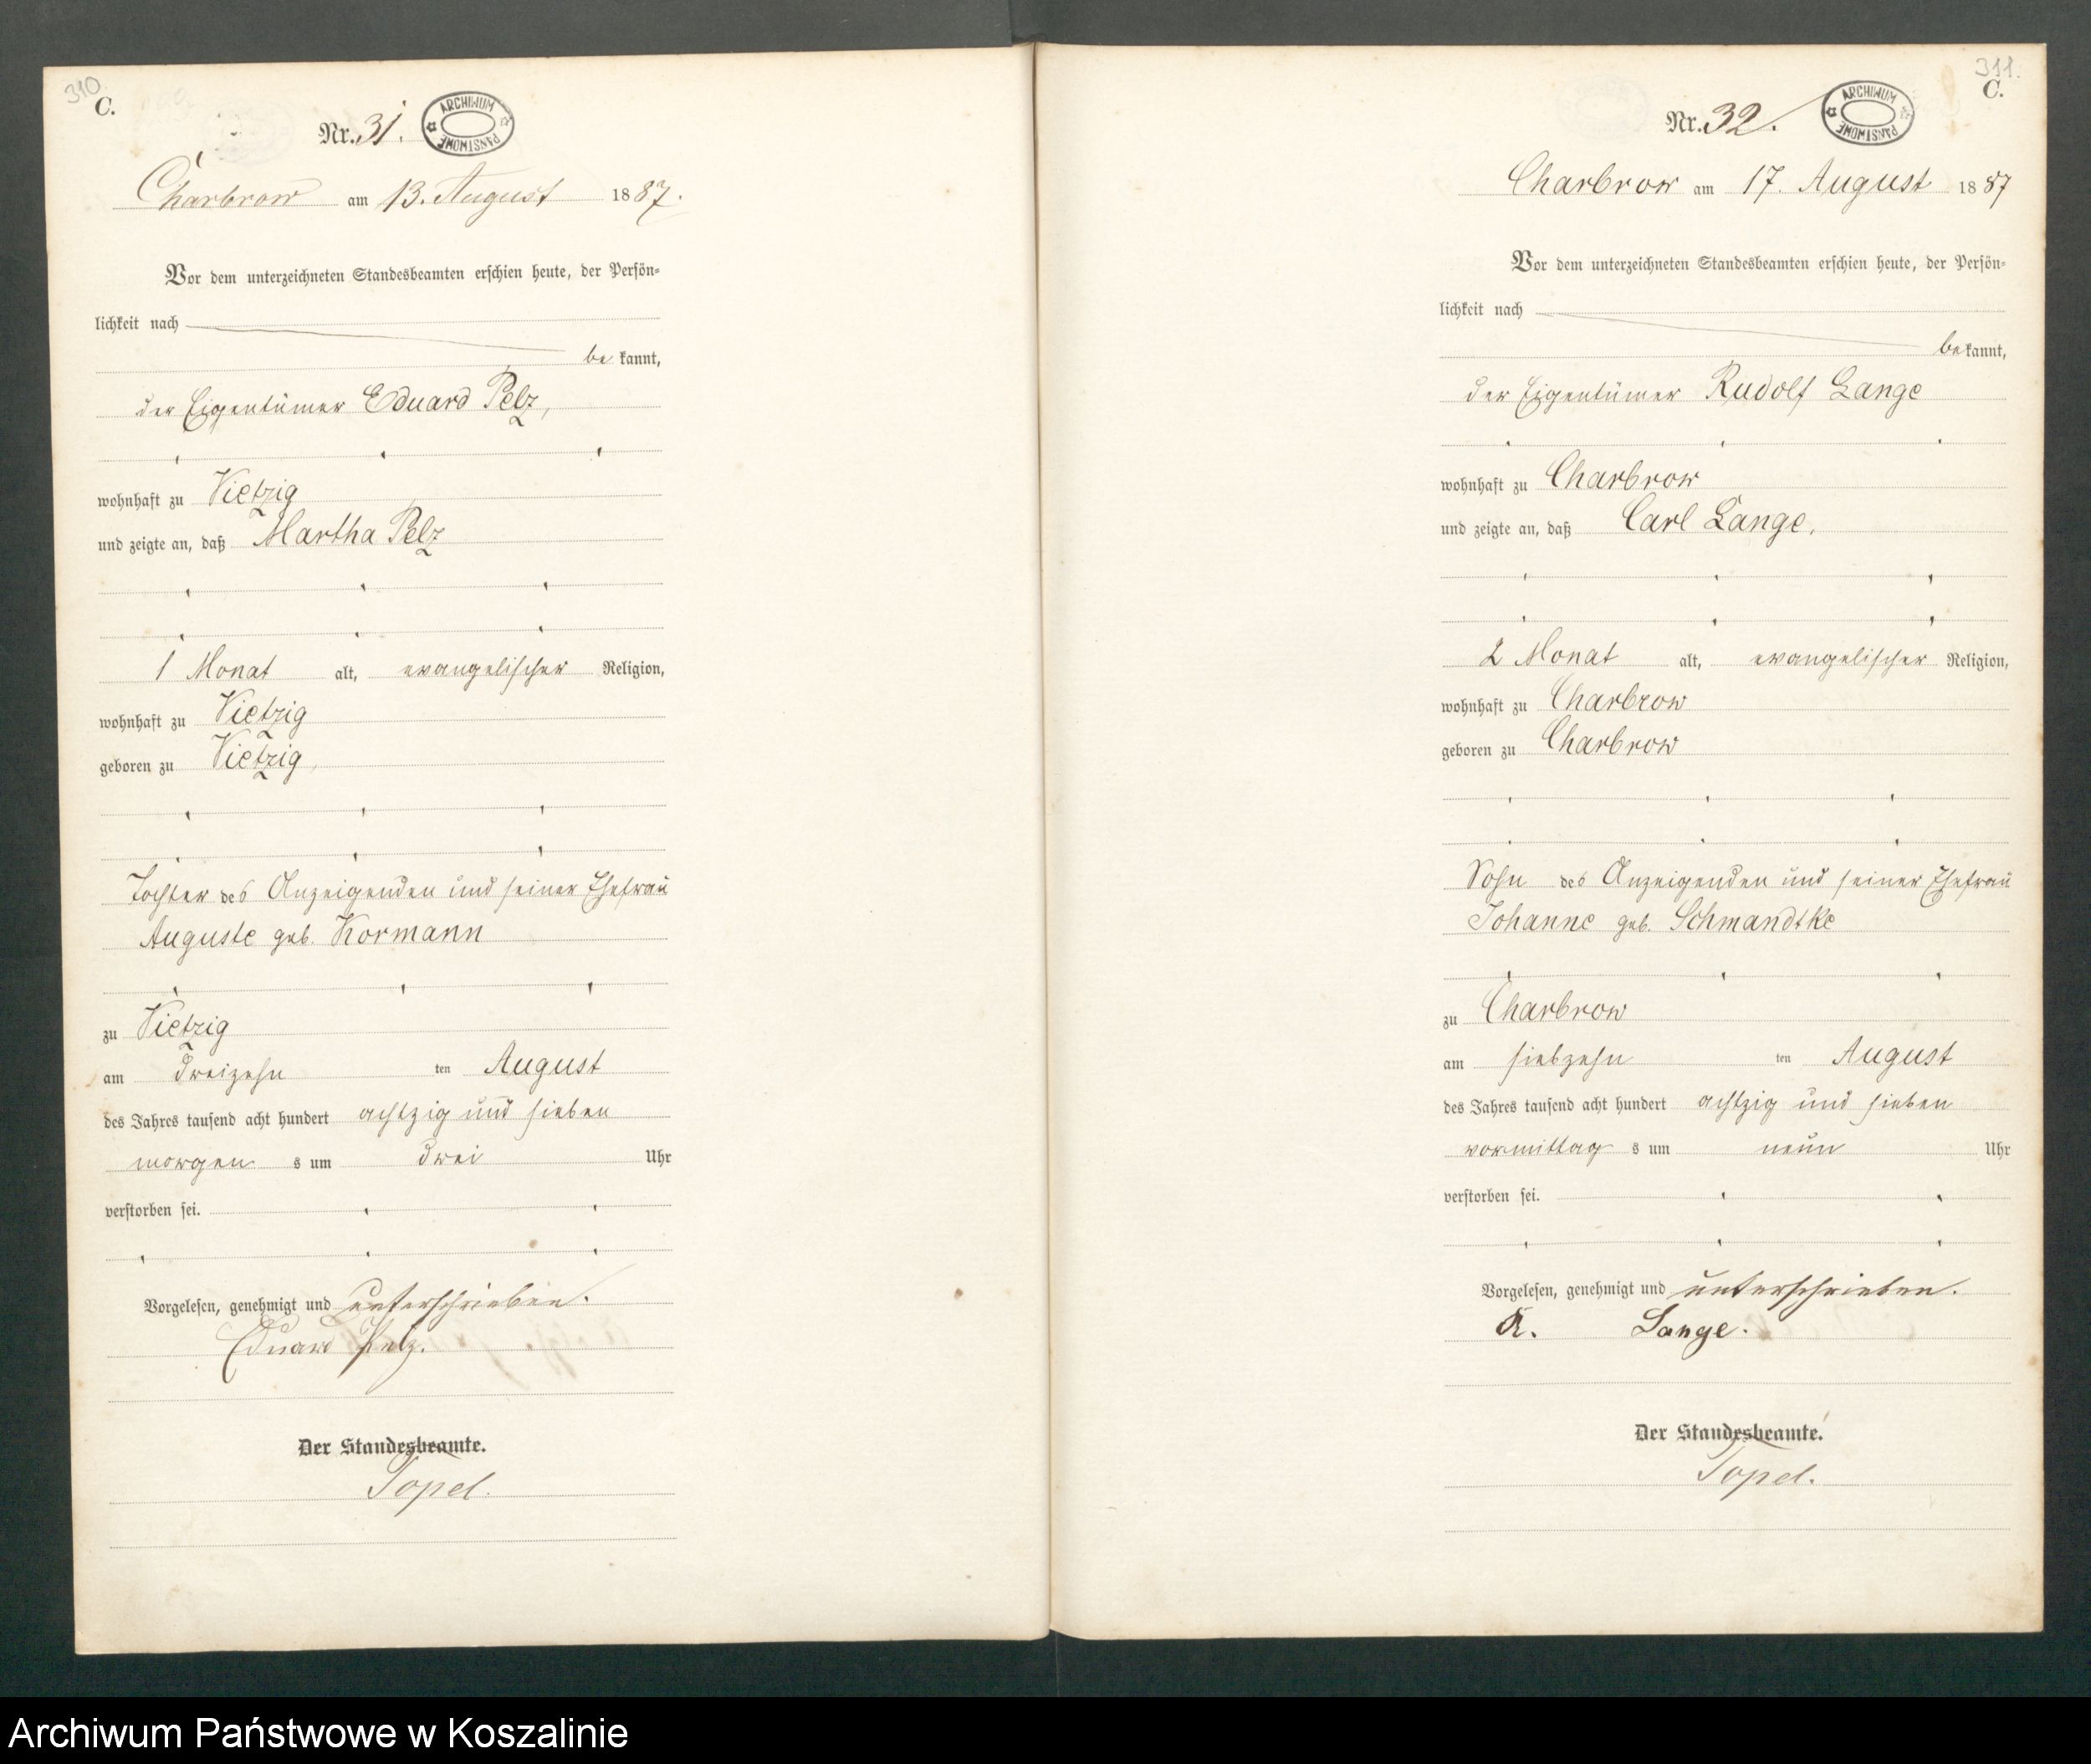 310
C.
Nr. 31.
ARCHIWUM PAŃSTWOWE
Charbrow am 13. August 1887.
Vor dem unterzeichneten Standesbeamten erschien heute, der Persön-
lichkeit nach
be kannt,
der Eigentümer Eduard Pelz,
wohnhaft zu Vietzig
und zeigte an, daß Martha Pelz
1 Monat alt, evangelischer Religion,
wohnhaft zu Vietzig
geboren zu Vietzig,
Tochter des Anzeigenden und seiner Ehefrau
Auguste geb. Kormann
zu Vietzig
am dreizehn ten August
des Jahres tausend acht hundert achtzig und sieben
morgen s um drei Uhr
verstorben sei.
Vorgelesen, genehmigt und unterschrieben.
Eduard Pelz.
Der Standesbeamte.
Topel.
311.
C.
Nr. 32.
ARCHIWUM PAŃSTWOWE
Charbrow am 17. August 1887
Vor dem unterzeichneten Standesbeamten erschien heute, der Persön-
lichkeit nach
bekannt,
der Eigentümer Rudolf Lange
wohnhaft zu Charbrow
und zeigte an, daß Carl Lange,
2 Monat alt, evangelischer Religion,
wohnhaft zu Charbrow
geboren zu Charbrow
Sohn des Anzeigenden und seiner Ehefrau
Johanne geb. Schmandtke
zu Charbrow
am siebzehn ten August
des Jahres tausend acht hundert achtzig und sieben
vormittag s um neun Uhr
verstorben sei.
Vorgelesen, genehmigt und unterschrieben.
R. Lange.
Der Standesbeamte.
Topel.
Archiwum Państwowe w Koszalinie